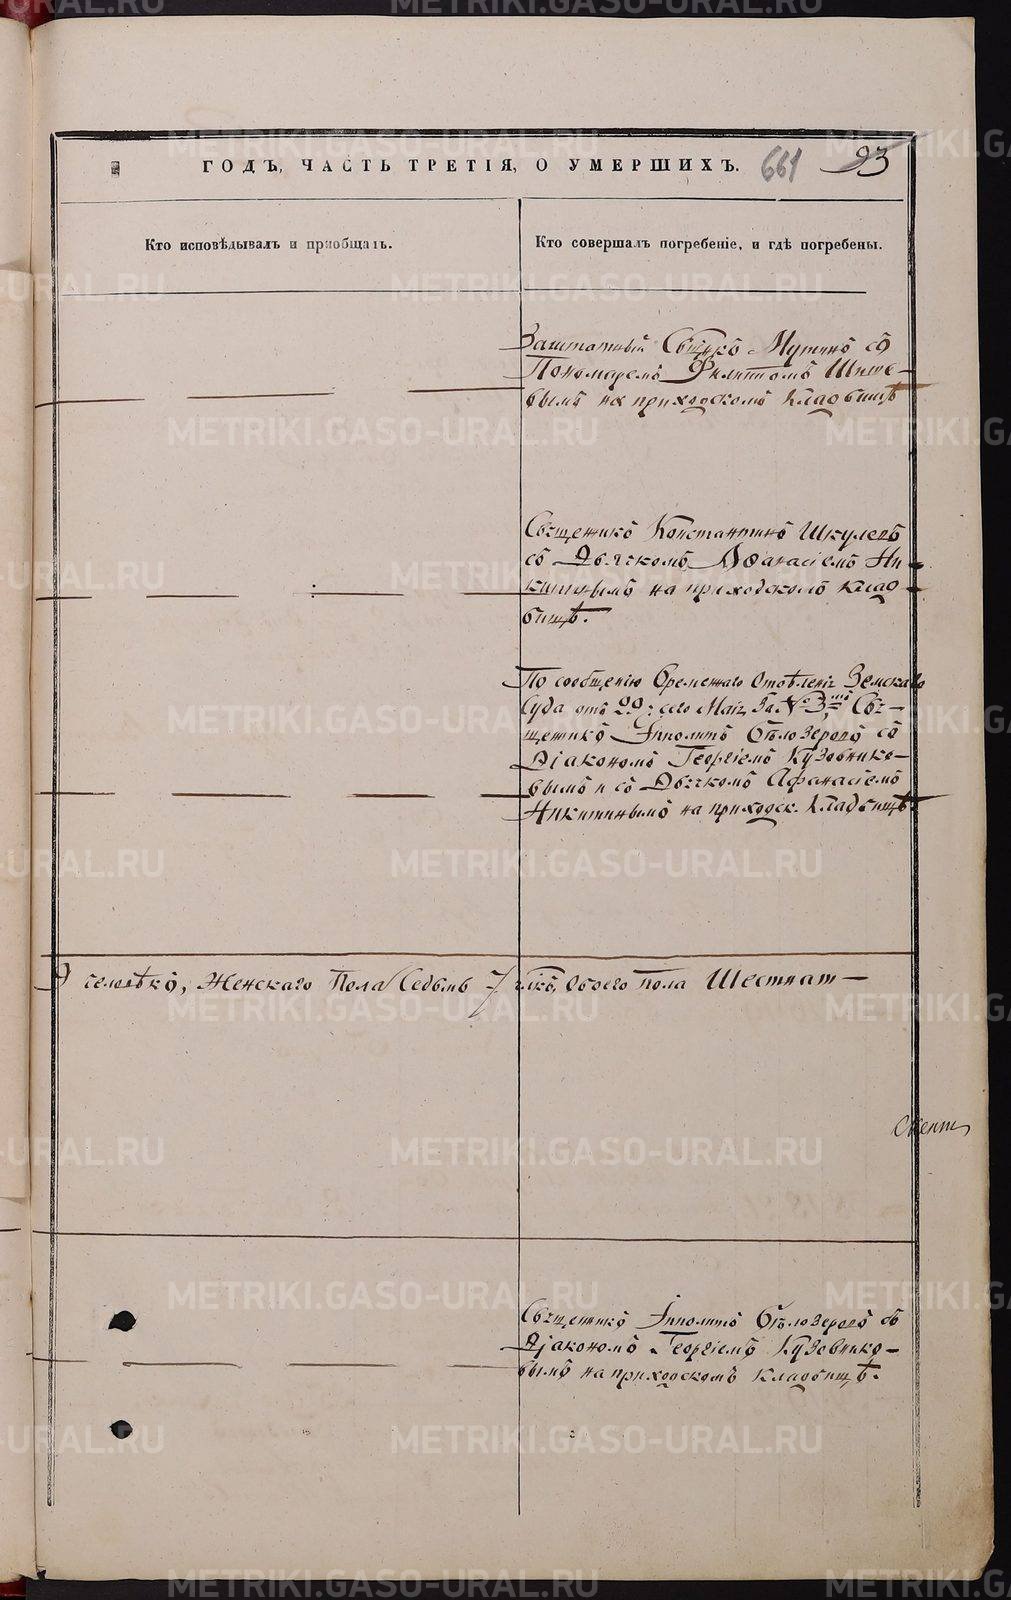 ГОДЪ, ЧАСТЬ ТРЕТІЯ, О УМЕРШИХЪ. 661 93
Кто исповѣдывалъ и пріобщалъ.
Кто совершалъ погребеніе, и гдѣ погребены.
Заштатный Свщнкъ Мутинъ съ
Пономаремъ Филиппомъ Шише-
вымъ на приходскомъ кладбищѣ
Священикъ Константинъ Шкулевъ
съ Дьячкомъ Афанасіемъ Ни-
китинымъ на приходскомъ клад-
бищѣ.
По сообщенію Временаго Отдѣленія Земскаго
Суда отъ 22: сего Маія за № 3, Свя-
щеникъ Ипполитъ Бѣлозеровъ съ
Діакономъ Георгіемъ Кузовнико-
вымъ и съ Дьячкомъ Афанасіемъ
Никитинымъ на приходск. Кладбищѣ.
9 человѣкъ, Женскаго Пола Седьмь 7 члкъ, Обоего Пола Шестнат-
Священикъ Ипполитъ Бѣлозеровъ съ
Діакономъ Георгіемъ Кузовнико-
вымъ на приходскомъ кладбищѣ.
METRIKI.GASO-URAL.RU